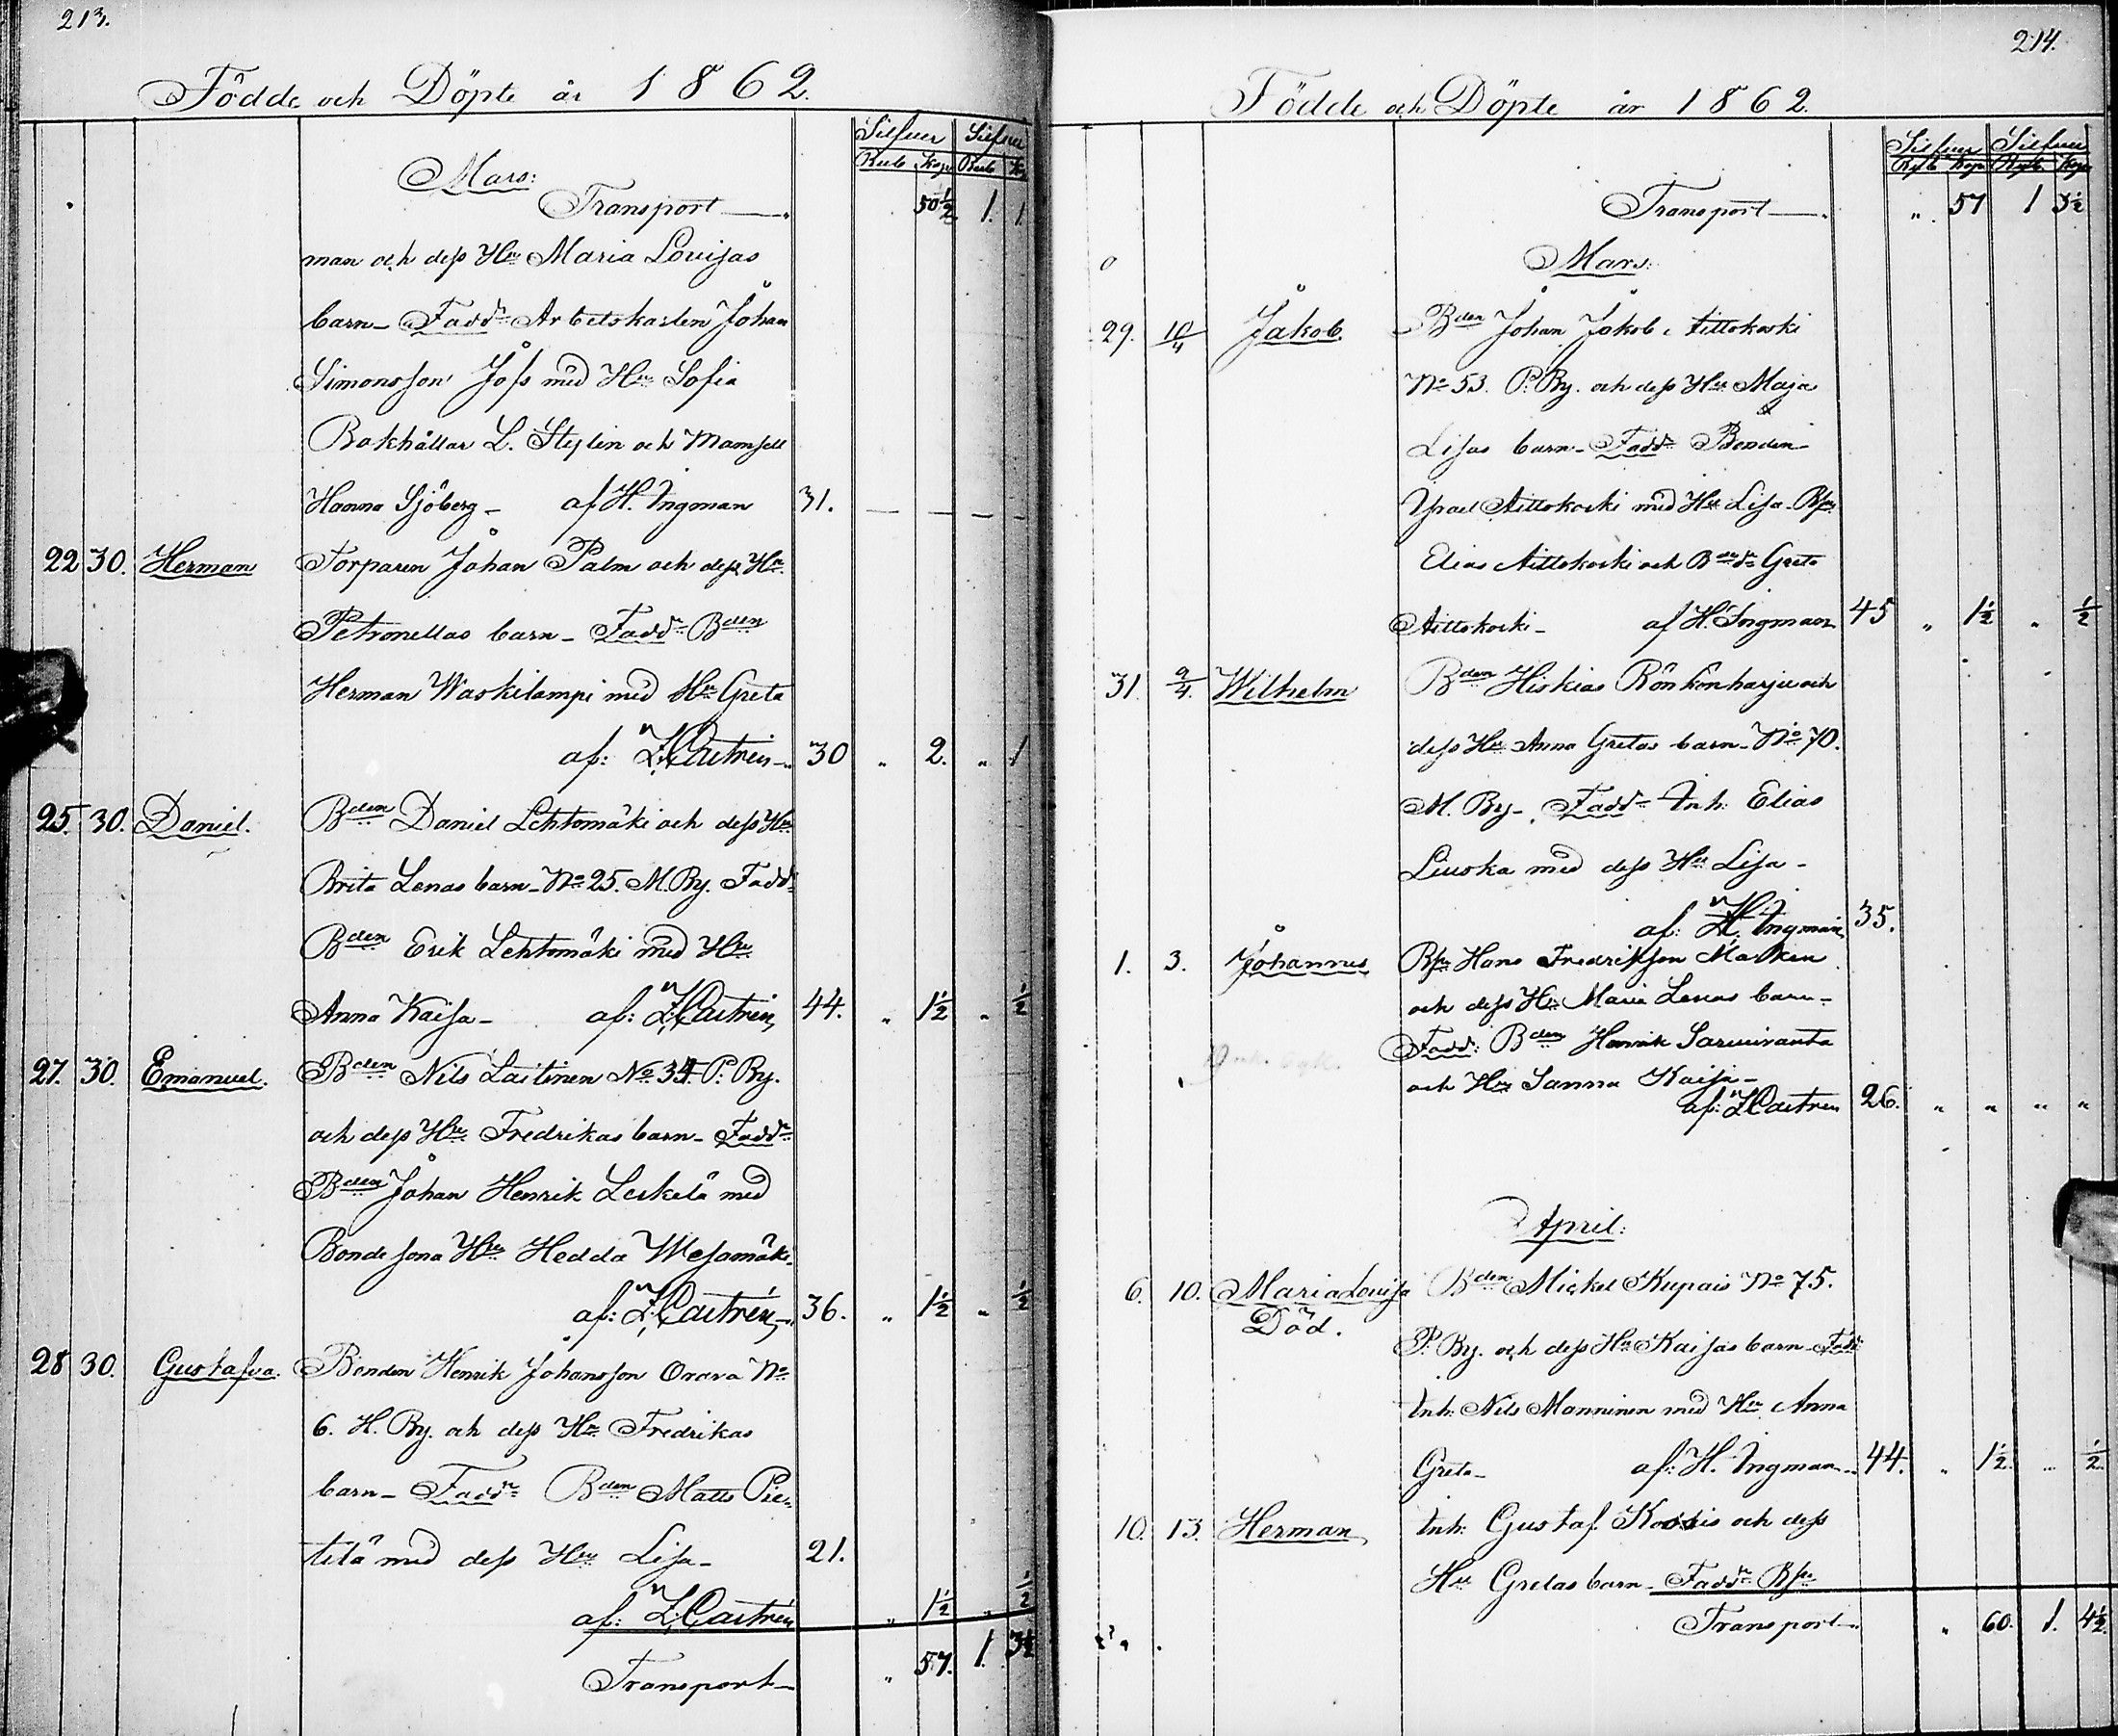 213.
Födde och Döpte år 1862.
Silfver Silfver
Rub Kop Rub K
Mars:
Transport 50½ 1. 1
man och dess Hu Maria Lovisas
barn – Faddr Arbetskarlen Johan
Simonsson Joss med Hu Sofia
Bokhållar L. Stylin och Mamsell
Hanna Sjöberg – af H. Ingman 31. — — — —
22 30. Herman Torparen Johan Palm och dess Hu
Petronellas barn – Faddr Bden
Herman Waskilampi med Hu Greta
af: Z. Castrén – 30 " 2. " 1
25. 30. Daniel. Bden Daniel Lehtomäki och dess Hu
Brita Lenas barn – No 25. M. By. Faddr
Bden Erik Lehtomäki med Hu
Anna Kaisa – af: Z. Castrén, 44. " 1½ " ½
27. 30. Emanuel. Bden Nils Laitinen No 34 P. By.
och dess Hu Fredrikas barn – Faddr
Bden Johan Henrik Leskelä med
Bondesona Hu Hedda Wesamäki.
af: Z. Castrén, 36. " 1½ " ½
28 30. Gustafva. Bonden Henrik Johansson Orava No
6. H. By. och dess Hu Fredrikas
barn – Faddr Bden Matts Pie-
tilä med dess Hu Lisa – 21.
af: Z. Castrén " 1½ " ½
Transport – " 57. 1. 3½
214.
Födde och Döpte år 1862.
Silfver Silfver
Rub Kop Rub Kop
Transport — " 57 1 3½
Mars:
29. 10/4 Jakob. Bden Johan Jakob Aittokoski
No 53. P. By. och dess Hu Maja
Lisas barn – Faddr Bonden
Israel Aittokoski med Hu Lisa. Bsn
Elias Aittokoski och Bdr Greta
Aittokoski – af H. Ingman 45 " 1½ " ½
31. 9/4. Wilhelm Bden Hiskias Rönkönharju och
dess Hu Anna Gretas barn – No 70.
M. By – Faddr Inh: Elias
Liuska med dess Hu Lisa –
af: H. Ingman, 35.
1. 3. Johannes Bsn Hans Fredriksson Malken
och dess Hu Maria Lenas barn –
Faddr: Bden Henrik Sarvivanta
och Hu Sanna Kaisa –
af: Z. Castrén 26. " " " "
April:
6. 10. Maria Lovisa Bden Mickel Kupais No 75.
Död.
P. By. och dess Hu Kaisas barn – Faddr
Inh: Nils Manninen med Hu Anna
Greta – af: H. Ingman – 44. " 1½. " ½.
10. 13. Herman Inh: Gustaf och dess
Hu Gretas barn – Faddr Bsn
Transport – " 60. 1. 4½.